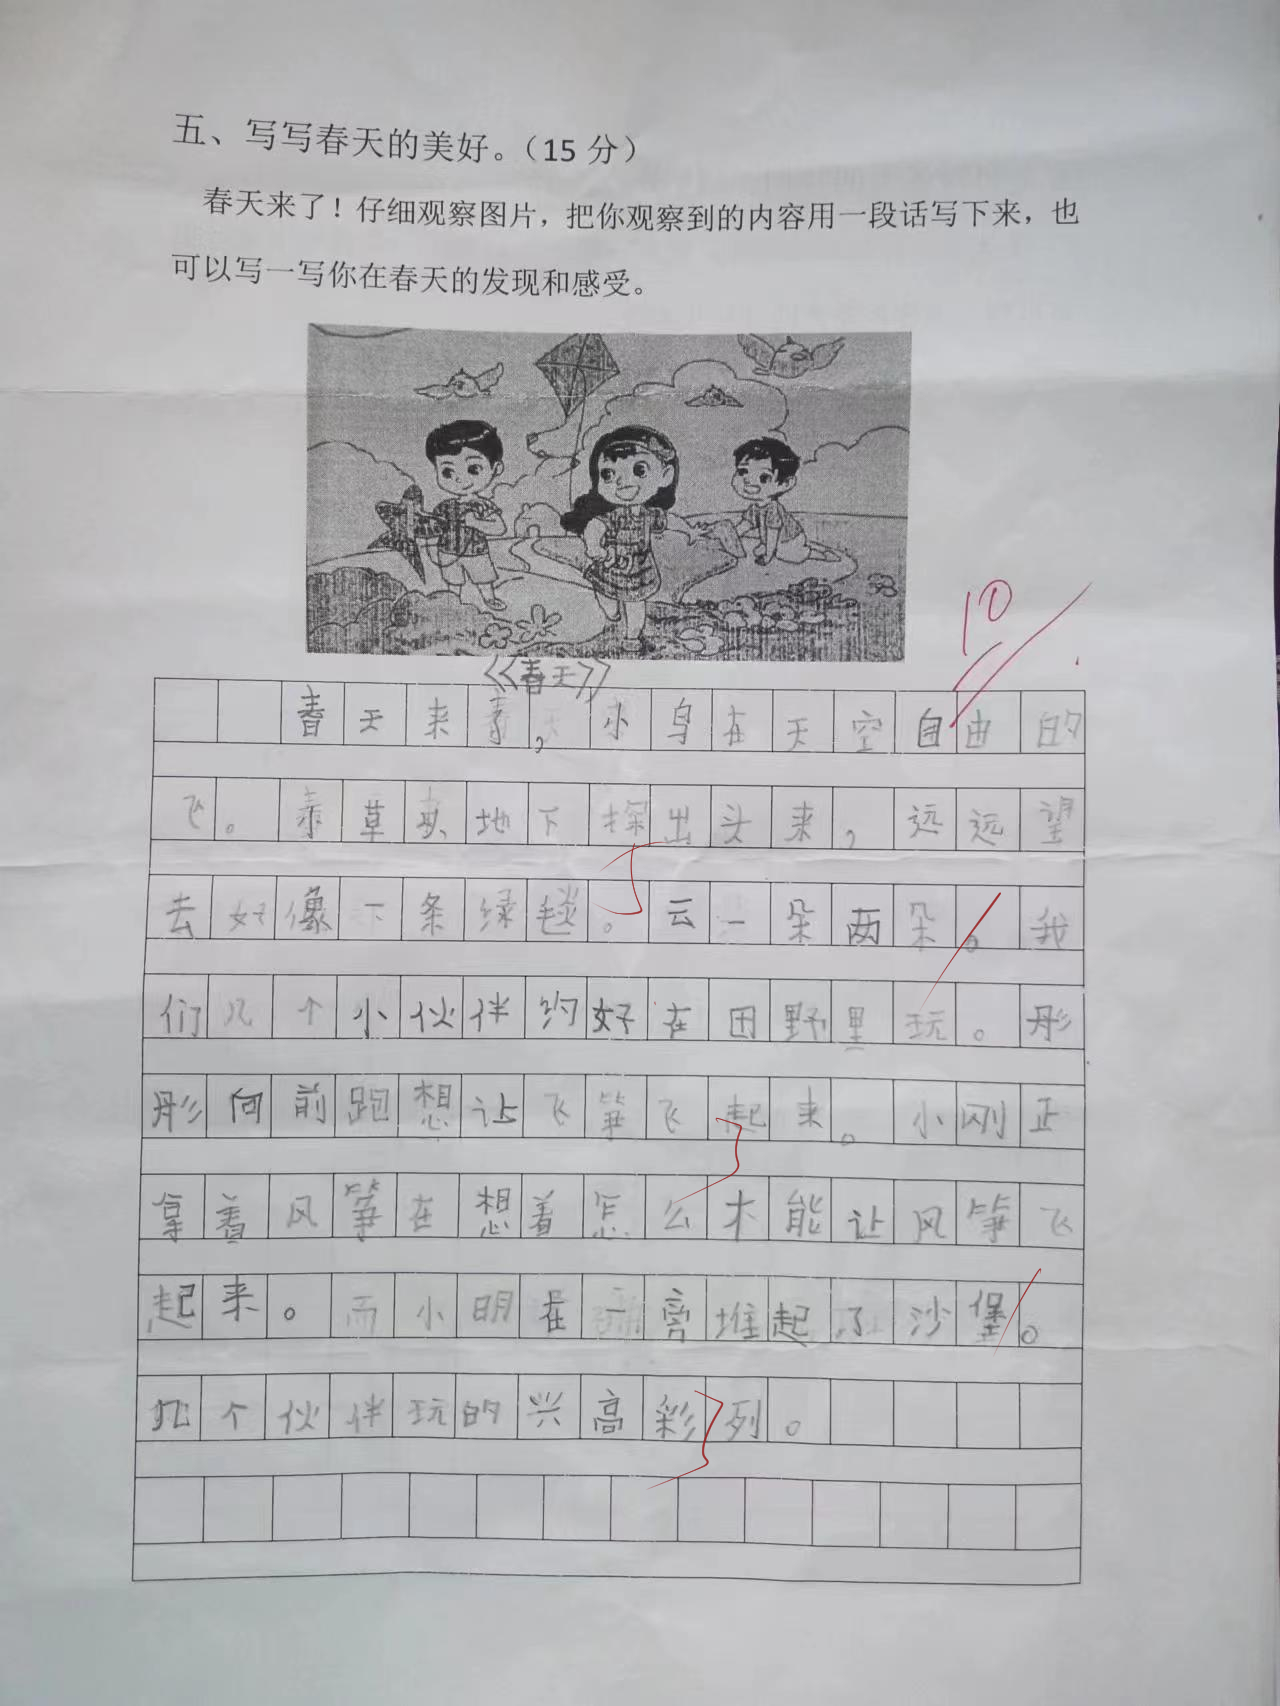 五、写写春天的美好。（15 分）
春天来了！仔细观察图片，把你观察到的内容用一段话写下来，也
可以写一写你在春天的发现和感受。
10
《春天》
春天来了，小鸟在天空自由的
飞。草从地下探出头来，远远望
去好像一条绿毯。云一朵两朵。我
们几个小伙伴约好在田野里玩。彤
彤向前跑想让飞筝飞起来。小刚正
拿着风筝在想着怎么才能让风筝飞
起来。而小明在一旁堆起了沙堡。
几个伙伴玩的兴高彩列。